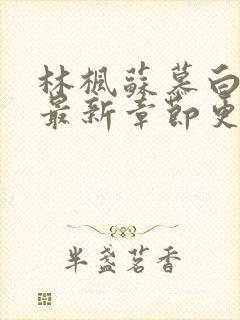 林楓蘇慕白
最新章節更
半盞茗香